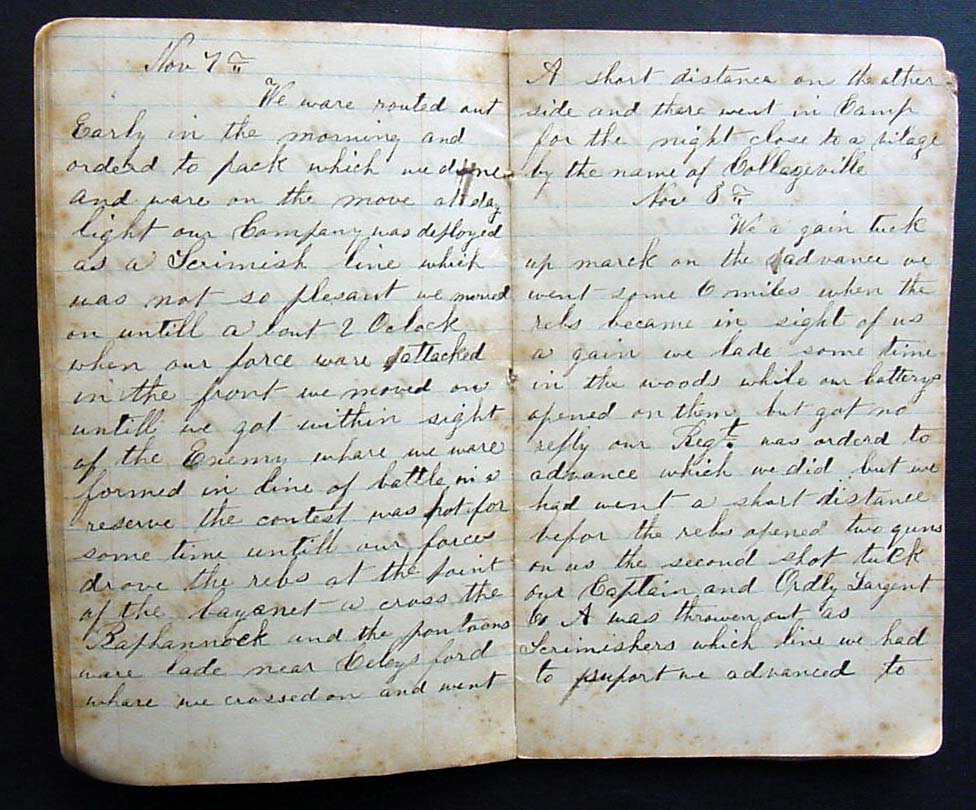 Nov 7th
We ware routed out
Early in the morning and
orderd to pack which we done
and ware on the move at day
light our Company was deployed
as a Scrimish line which
was not so plesant we moved
on untill a bout 2 Oclock
when our force ware attacked
in the front we moved on
untill we got within sight
of the Enemy whare we ware
formed in line of battle in a
reserve the contest was hot for
some time untill our forces
drove the rebs at the point
of the bayanet a cross the
Raphannock and the pontoons
ware lade near Celeys ford
whare we crossed on and went
A short distance on the other
side and there went in Camp
for the night close to a vilage
by the name of Collageville
Nov 8th
We a gain tuck
up march on the advance we
went some 6 miles when the
rebs became in sight of us
a gain we lade some time
in the woods while our batterys
opened on them but got no
reply our Regt. was orderd to
advance which we did but we
had went a short distance
befor the rebs opened two guns
on us the second shot tuck
our Captain and Ordly Sargent
Co A was throwen out as
Scrimishers which line we had
to suport we advanced to